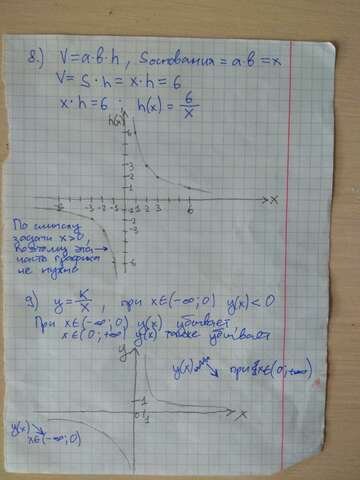 8.) V=a·b·h, Sоснования=a·b=x
V=S·h=x·h=6
x·h=6 h(x)=6/x
h(x)
6
3
2
1
-5 -3 -2 -1 1 2 3 6 x
-1
-2
-3
-6
По смыслу
задачи x>0,
поэтому эта
часть графика
не нужна
9) y=K/x, при x∈(-∞;0) y(x)<0
При x∈(-∞;0) y(x) убывает,
x∈(0;+∞) y(x) также убывает
y
y(x) при x∈(0;+∞)
1
0 1 x
y(x)
x∈(-∞;0)